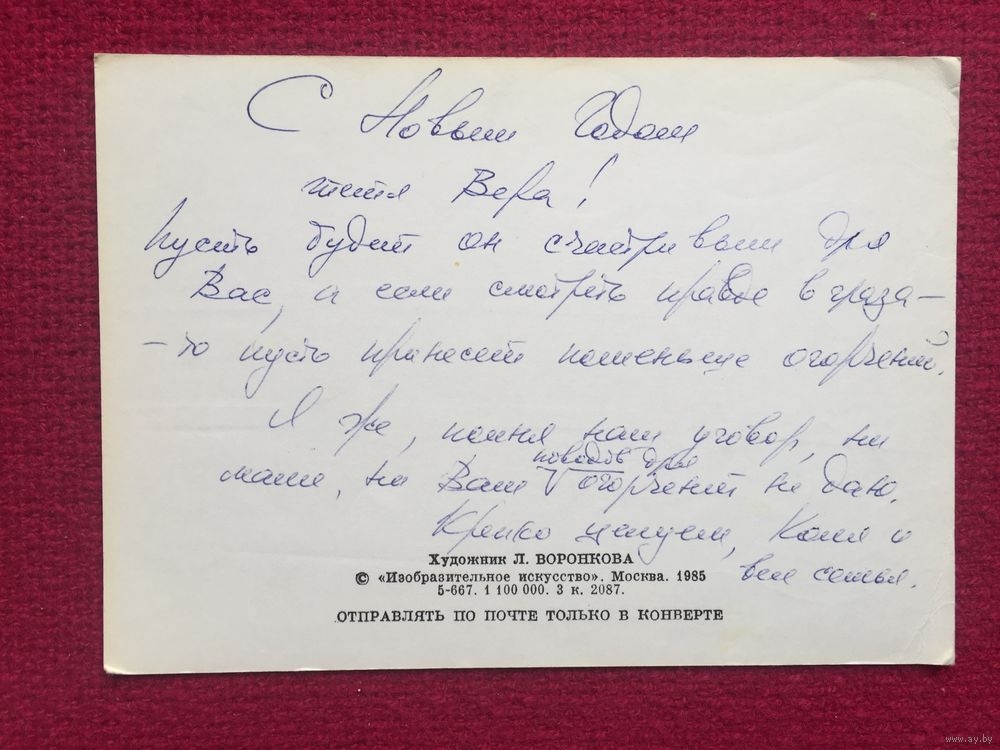 С Новым Годом
тётя Вера!
Пусть будет он счастливым для
Вас, а если смотреть правде в глаза –
– то пусть принесет поменьше огорчений.
Я же, помня наш уговор, ни
маме, ни Вам поводов для огорчений не даю.
Крепко целуем, Коля и
вся семья.
Художник Л. ВОРОНКОВА
© «Изобразительное искусство». Москва. 1985
5-667. 1 100 000. 3 к. 2087.
ОТПРАВЛЯТЬ ПО ПОЧТЕ ТОЛЬКО В КОНВЕРТЕ
www.ay.by